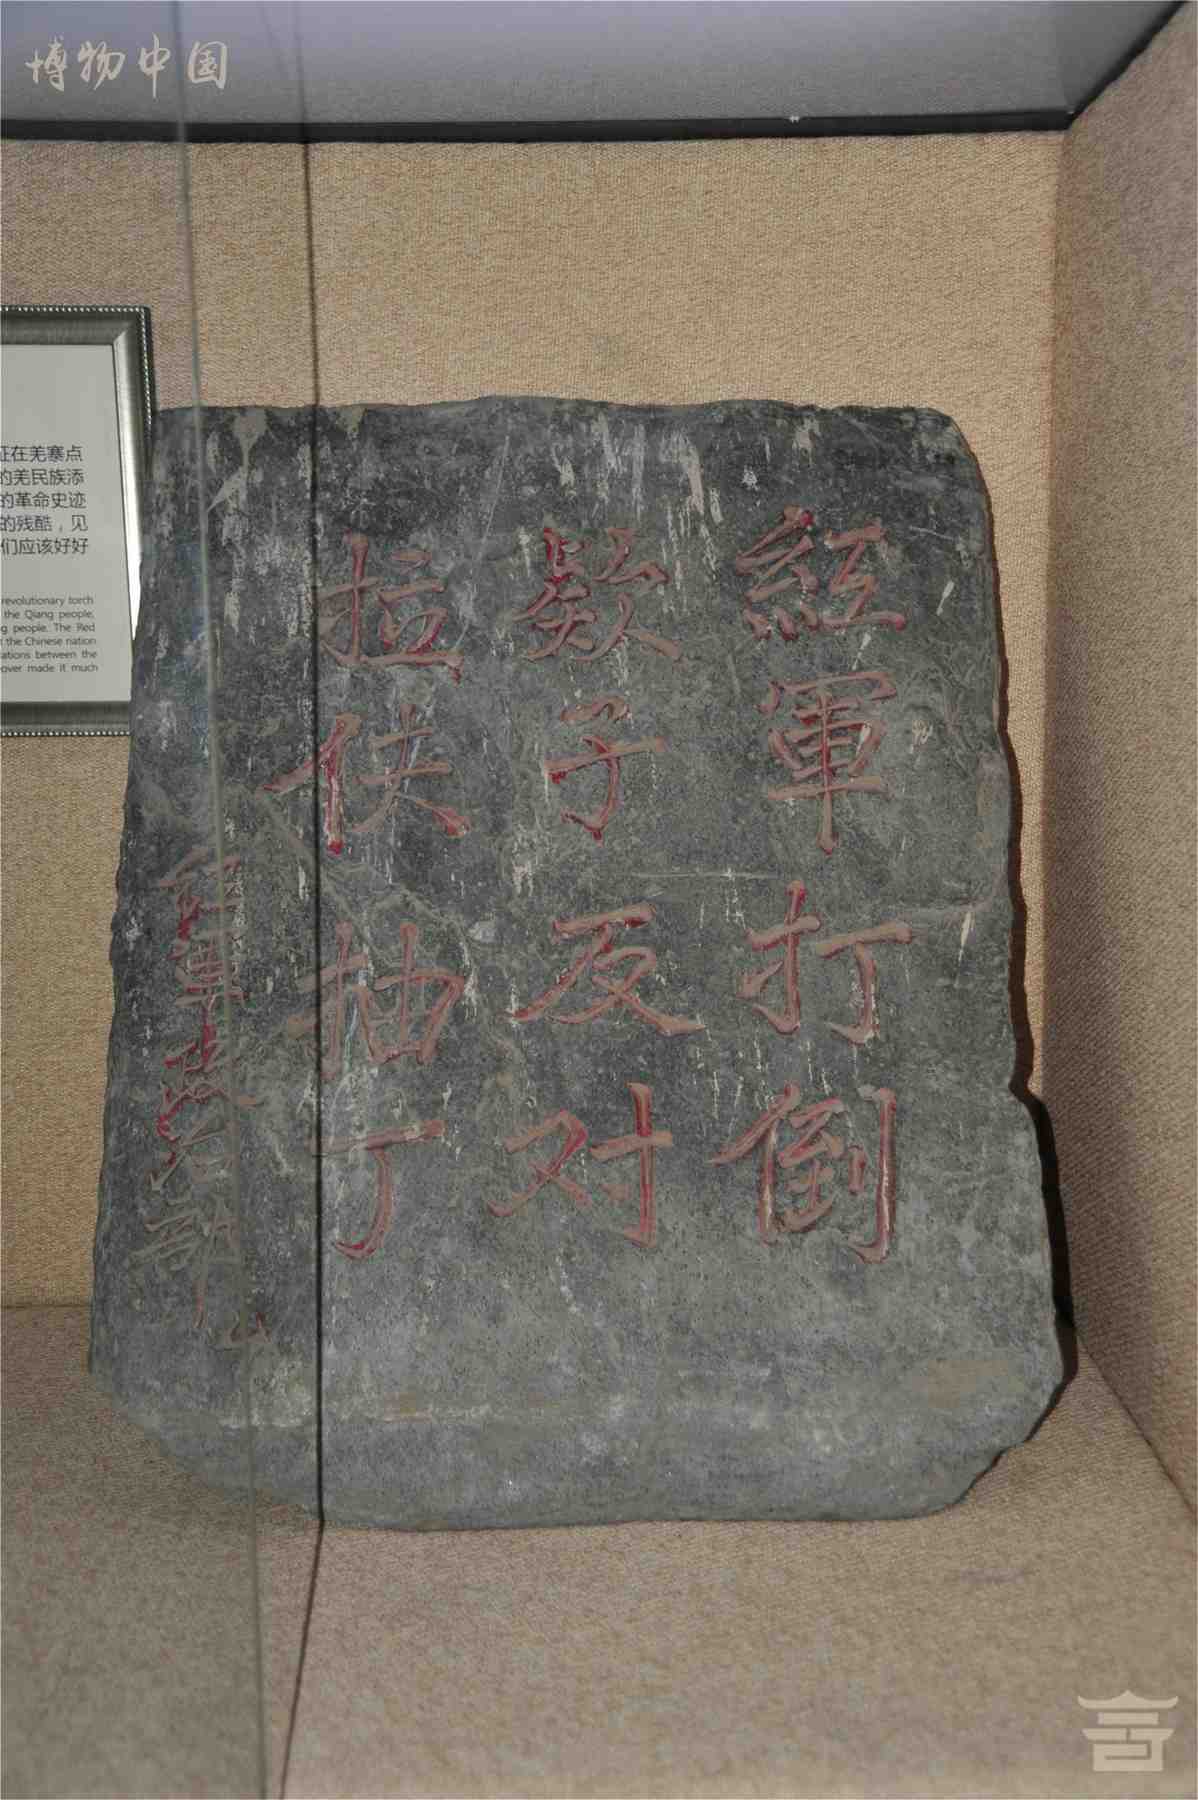 博物中国
紅軍打倒
欵子反对
拉伕抽丁
红軍
部
征在羌寨点
的羌民族添
的革命史迹
的残酷，见
们应该好好
revolutionary torch
the Qiang people,
ng people. The Red
the Chinese nation
ations between the
over made it much